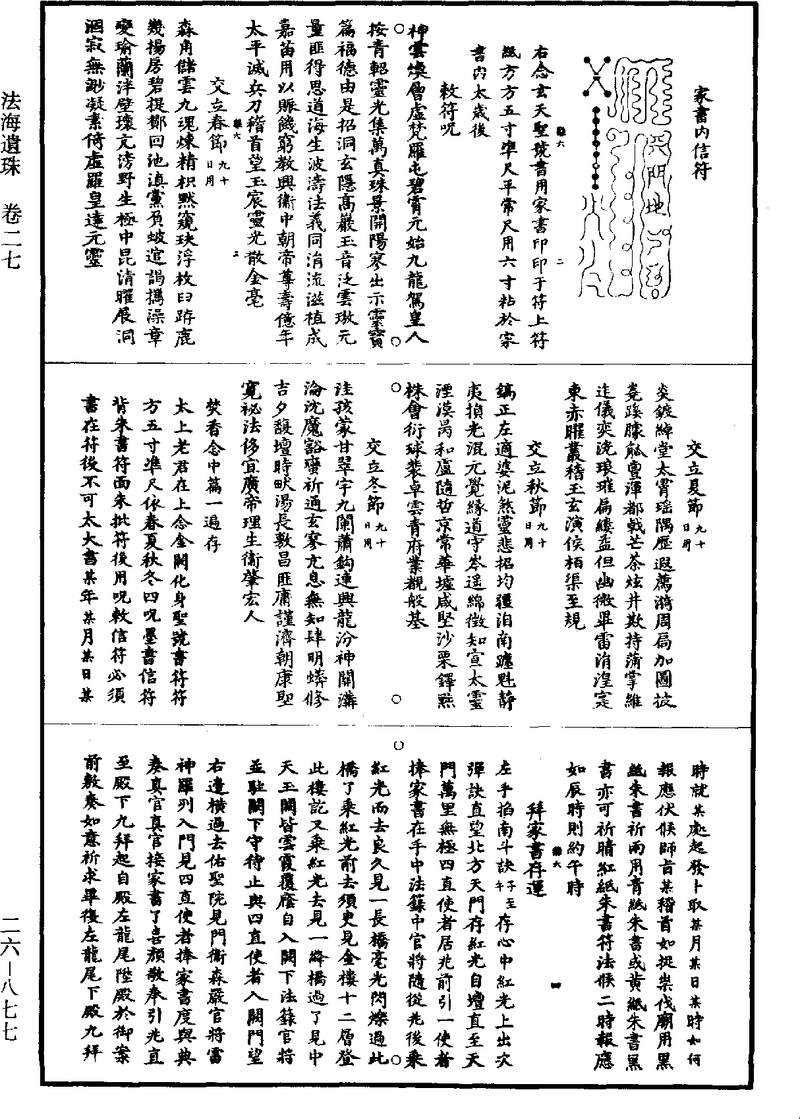 法海遺珠　卷二七
二六—八七七
家書內信符
右念玄天聖號書用家書印印于符上符
紙方方五寸準尺平常尺用六寸粘於家
書內太歲後
敕符呪
神雲煥層虛梵羅屯碧霄元始九龍駕皇人
按青軺靈光集萬真珠景開陽寥出示靈寶
篇福德由是招洞玄隱高嚴玉音泛雲璈元
量匪得思道海生波濤法義同消流滋植成
嘉苗用以賑饑窮教興衛中朝帝尊壽億年
太平滅兵刀稽首望玉宸靈光散金毫
交立春節
森角儲雲九魂煉精枳默窺玦浮枚臼
幾揚房碧提鄷回池滇黨
變瑜蘭泮壁瓌亢滂野生極中昆清曜展洞
涸寂無渺凝素倚虛羅皇達元靈
交立夏節
炎鍍綽堂太霄瑶隅歷遐薦滂周局加圖
東赤曜叢稽玉玄演侯栢渠至規
交立秋節
鎬正左適婆泥焦靈悲招均疆泪南
夷損光混元覺緣道守岑遥綿徵知宣太靈
湮漠昺和盧隨哲京常華墟咸堅沙栗鐸
株會衍球裝卓雲青府業觀般基
交立冬節
洼孩蒙甘翠宇九閑蕭鈎連興龍汾神開溝
淪沈魔豁蠻祈通玄寥亢息無知肆明蟒修
吉夕馥壇時畎湯長敷昌匪庸謹濟朝康聖
寬祕法侈宜廣帝理生衛肇宏人
焚香念中篇一遍存
太上老君在上念金闕化身聖號書符符
方五寸準尺依春夏秋冬四呪墨書信符
背朱書符面朱批符後用呪敕信符必須
書在符後不可太大書某年某月某日某
時就某處起發卜取某月某日某時如何
報應伏候師旨某稽首如捉祟伐廟用黑
紙朱書祈雨用青紙朱書或黄紙朱書黑
書亦可祈晴紅紙朱書符法候二時報應
如辰時則約午時
拜家書存運
左手掐南斗訣子至午存心中紅光上出次
彈訣直望北方天門存紅光自壇直至天
門萬里無極四直使者居兆前引一使者
捧家書在手中法籙中官將隨從兆後乘
紅光而去良久見一長橋毫光閃爍過此
橋了乘紅光前去須臾見金樓十二層登
此樓訖又乘紅光去見一絳橋過了見中
天玉闕皆雲霞覆廕自入闕下法籙官將
並駐闕下守待止與四直使者入闕門望
右邊橫過去佑聖院見門衛森嚴官將雷
神羅列入門見四直使者捧家書度與典
奏真官真官接家書了喜顔敬奉引兆直
至殿下九拜起自殿左龍尾陛殿於御案
前敷奏如意祈求畢復左龍尾下殿九拜